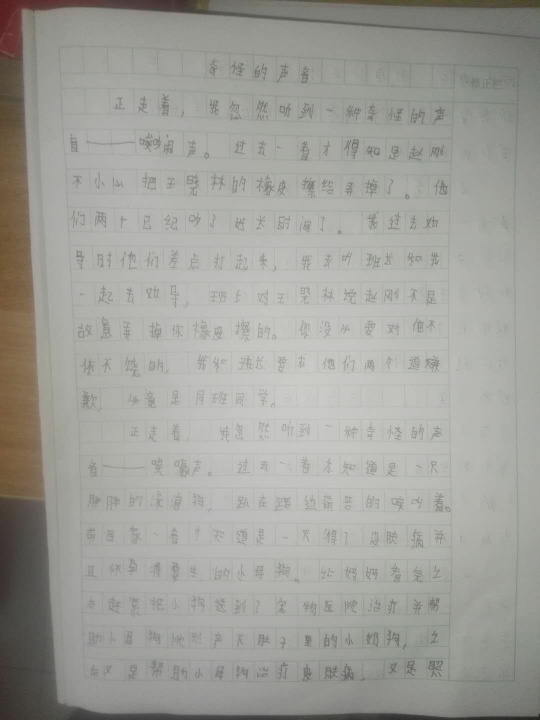 奇怪的声音
正走着，我忽然听到一种奇怪的声
音——吵闹声。过去一看才得知是赵刚
不小心把王晓林的橡皮擦给弄掉了。他
们两个已经吵了好长时间了。我过去劝
导时他们差点打起来，我去叫班长和我
一起去劝导，班长对王晓林说赵刚不是
故意弄掉你橡皮擦的。你没必要对他不
依不饶的，我和班长要求他们两个道歉
歉，毕竟是同班同学。
正走着，我忽然听到一种奇怪的声
音——嚎声。过去一看才知道是一只
胖胖的流浪狗，趴在路边痛苦的嚎叫着。
仔细一看才知道是一只得了皮肤病并
且怀孕准备要生的小母狗。
赶紧把小狗送到了宠物医院治疗并帮
助小母狗顺利产下肚子里的小奶狗，
又是帮助小母狗治疗皮肤病，又是照